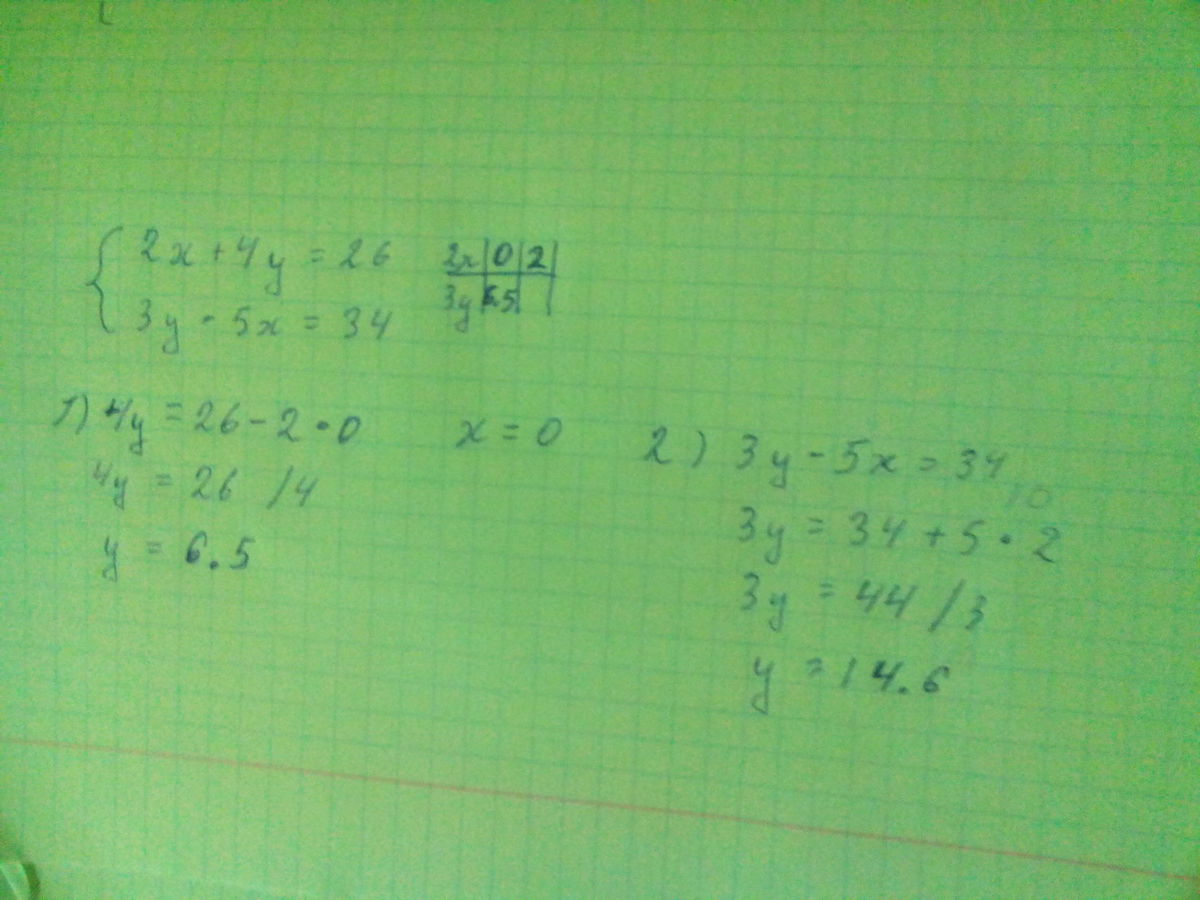 2x + 4y = 26
3y - 5x = 34
2x | 0 | 2
3y | 6.5 |
1) 4y = 26 - 2 · 0
4y = 26 /4
y = 6.5
x = 0
2) 3y - 5x = 34
10
3y = 34 + 5 · 2
3y = 44 /3
y = 14.6